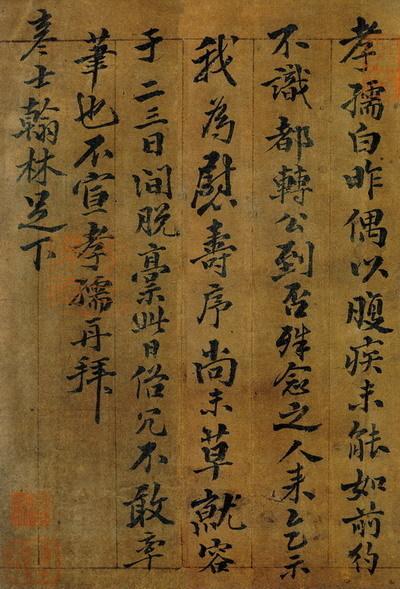 孝孺白昨偶以腹疾未能如前约
不識都轉公到否殊念之人来乞示
我為慰壽序尚未草就容
于二三日间脱稾此日俗冗不敢率
筆也不宣孝孺再拜
彦士翰林足下